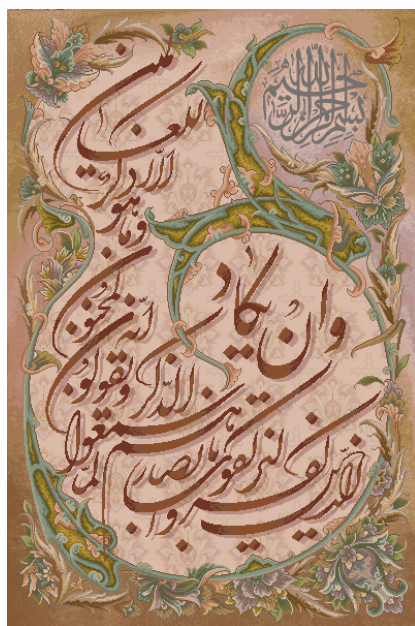 بسم الله الرحمن الرحیم
وان یکاد
الذین کفروا
لیزلقونک بابصارهم
لما سمعوا
الذکر ویقولون
انّه لمجنون
وما هو
الا ذکر
للعالمین